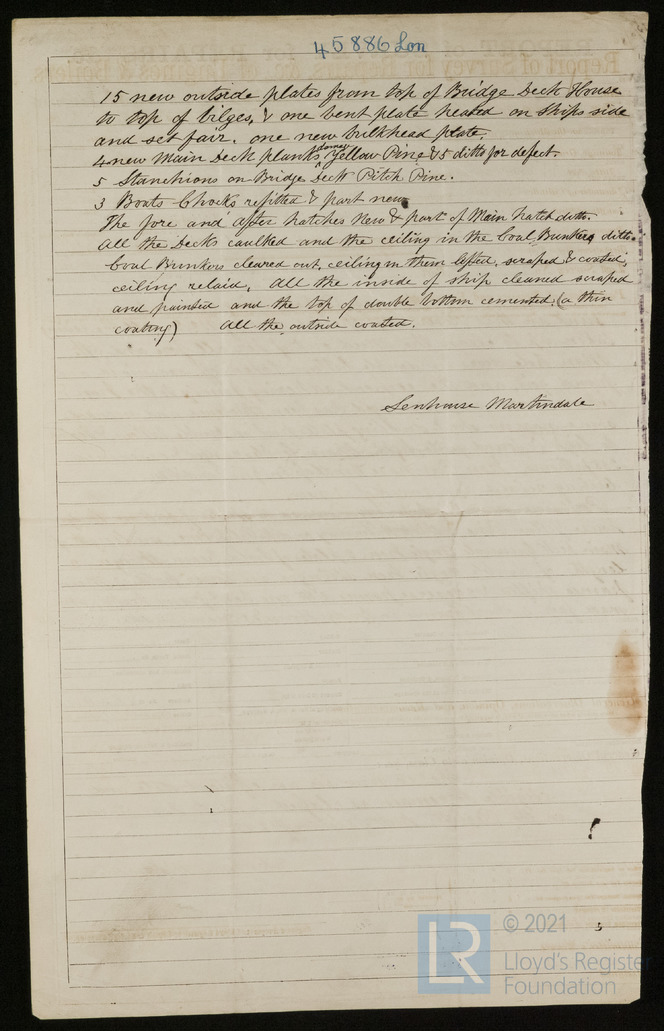 45886 Lon
15 new outside plates from top of Bridge Deck House
to top of bilges, & one bent plate heated on ships side
and set fair. one new bulkhead plate.
4 new Main Deck planks damage Yellow Pine & 5 ditto for defect.
5 Stanchions on Bridge Deck Pitch Pine.
3 Boats Chocks refitted & part new
The fore and after hatches New & part of Main hatch ditto.
All the Decks caulked and the ceiling in the Coal Bunkers ditto.
Coal Bunkers cleared out, ceiling in them lifted, scraped & coated,
ceiling relaid, All the inside of ship cleaned scraped
and painted and the top of double bottom cemented. (a thin
coating) All the outside coated.
Senhouse Martindale
LR
© 2021
Lloyd's Register
Foundation